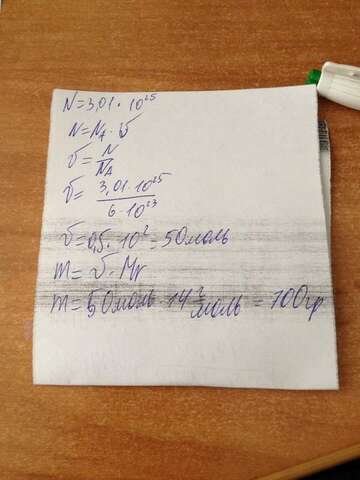 N=3,01·10²⁵
N=Nₐ·ν
ν=N/Nₐ
ν=3,01·10²⁵/6·10²³
ν=0,5·10²=50моль
m=ν·Mr
m=50моль·14 г/моль=700гр